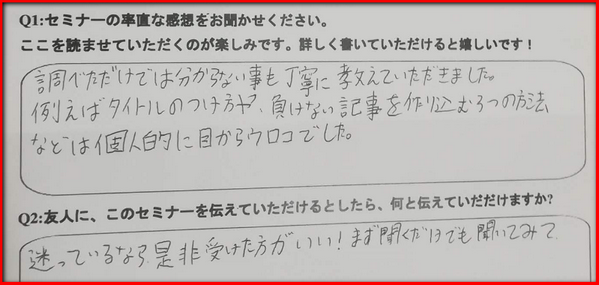 Q1:セミナーの率直な感想をお聞かせください。
ここを読ませていただくのが楽しみです。詳しく書いていただけると嬉しいです！
調べただけでは分からない事も丁寧に教えていただきました。
例えばタイトルのつけ方や、負けない記事を作り込む3つの方法
などは個人的に目からウロコでした。
Q2:友人に、このセミナーを伝えていただけるとしたら、何と伝えていただけますか?
迷っているなら、是非受けた方がいい！まず聞くだけでも聞いてみて